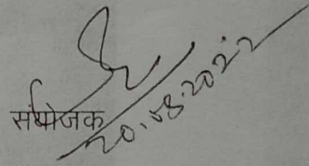 संयोजक
20.08.2022